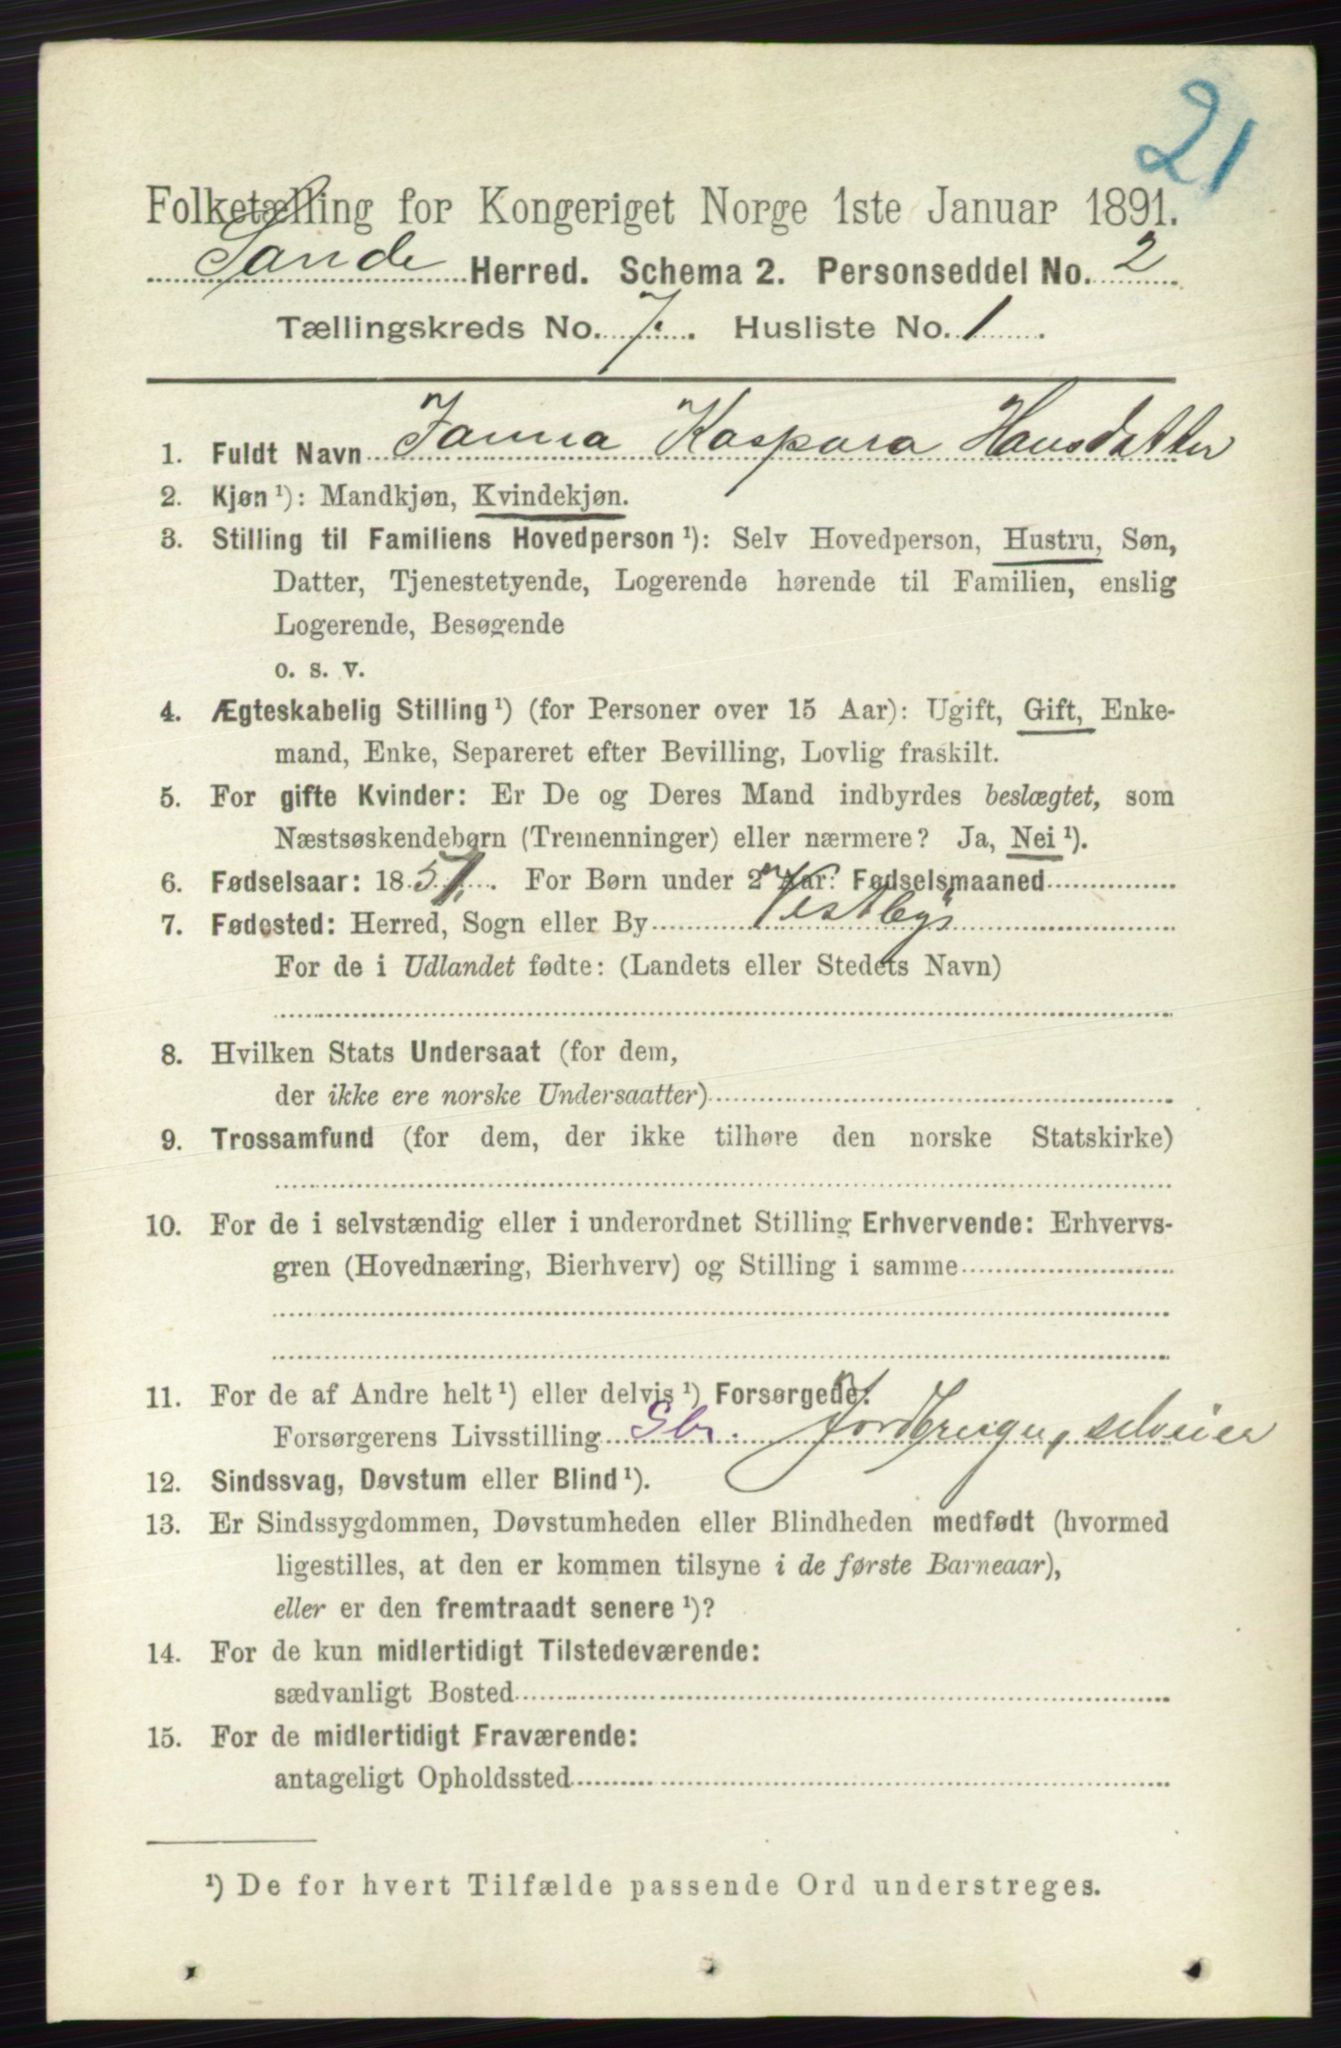 21
Folketælling for Kongeriget Norge 1ste Januar 1891.
Sande Herred. Schema 2. Personseddel No. 2
Tællingskreds No. 7. Husliste No. 1
1. Fuldt Navn Janna Kaspara Hansdatter
2. Kjøn ¹): Mandkjøn, Kvindekjøn.
3. Stilling til Familiens Hovedperson ¹): Selv Hovedperson, Hustru, Søn,
Datter, Tjenestetyende, Logerende hørende til Familien, enslig
Logerende, Besøgende
o. s. v.
4. Ægteskabelig Stilling ¹) (for Personer over 15 Aar): Ugift, Gift, Enke-
mand, Enke, Separeret efter Bevilling, Lovlig fraskilt.
5. For gifte Kvinder: Er De og Deres Mand indbyrdes beslægtet, som
Næstsøskendebørn (Tremenninger) eller nærmere? Ja, Nei ¹).
6. Fødselsaar: 1851. For Børn under 2 Aar: Fødselsmaaned
7. Fødested: Herred, Sogn eller By Vestby
For de i Udlandet fødte: (Landets eller Stedets Navn)
8. Hvilken Stats Undersaat (for dem,
der ikke ere norske Undersaatter)
9. Trossamfund (for dem, der ikke tilhøre den norske Statskirke)
10. For de i selvstændig eller i underordnet Stilling Erhvervende: Erhvervs-
gren (Hovednæring, Bierhverv) og Stilling i samme
11. For de af Andre helt ¹) eller delvis ¹) Forsørgede:
Forsørgerens Livsstilling Gbr. Jordbruger, selveier
12. Sindssvag, Døvstum eller Blind ¹).
13. Er Sindssygdommen, Døvstumheden eller Blindheden medfødt (hvormed
ligestilles, at den er kommen tilsyne i de første Barneaar),
eller er den fremtraadt senere ¹)?
14. For de kun midlertidigt Tilstedeværende:
sædvanligt Bosted
15. For de midlertidigt Fraværende:
antageligt Opholdssted
¹) De for hvert Tilfælde passende Ord understreges.